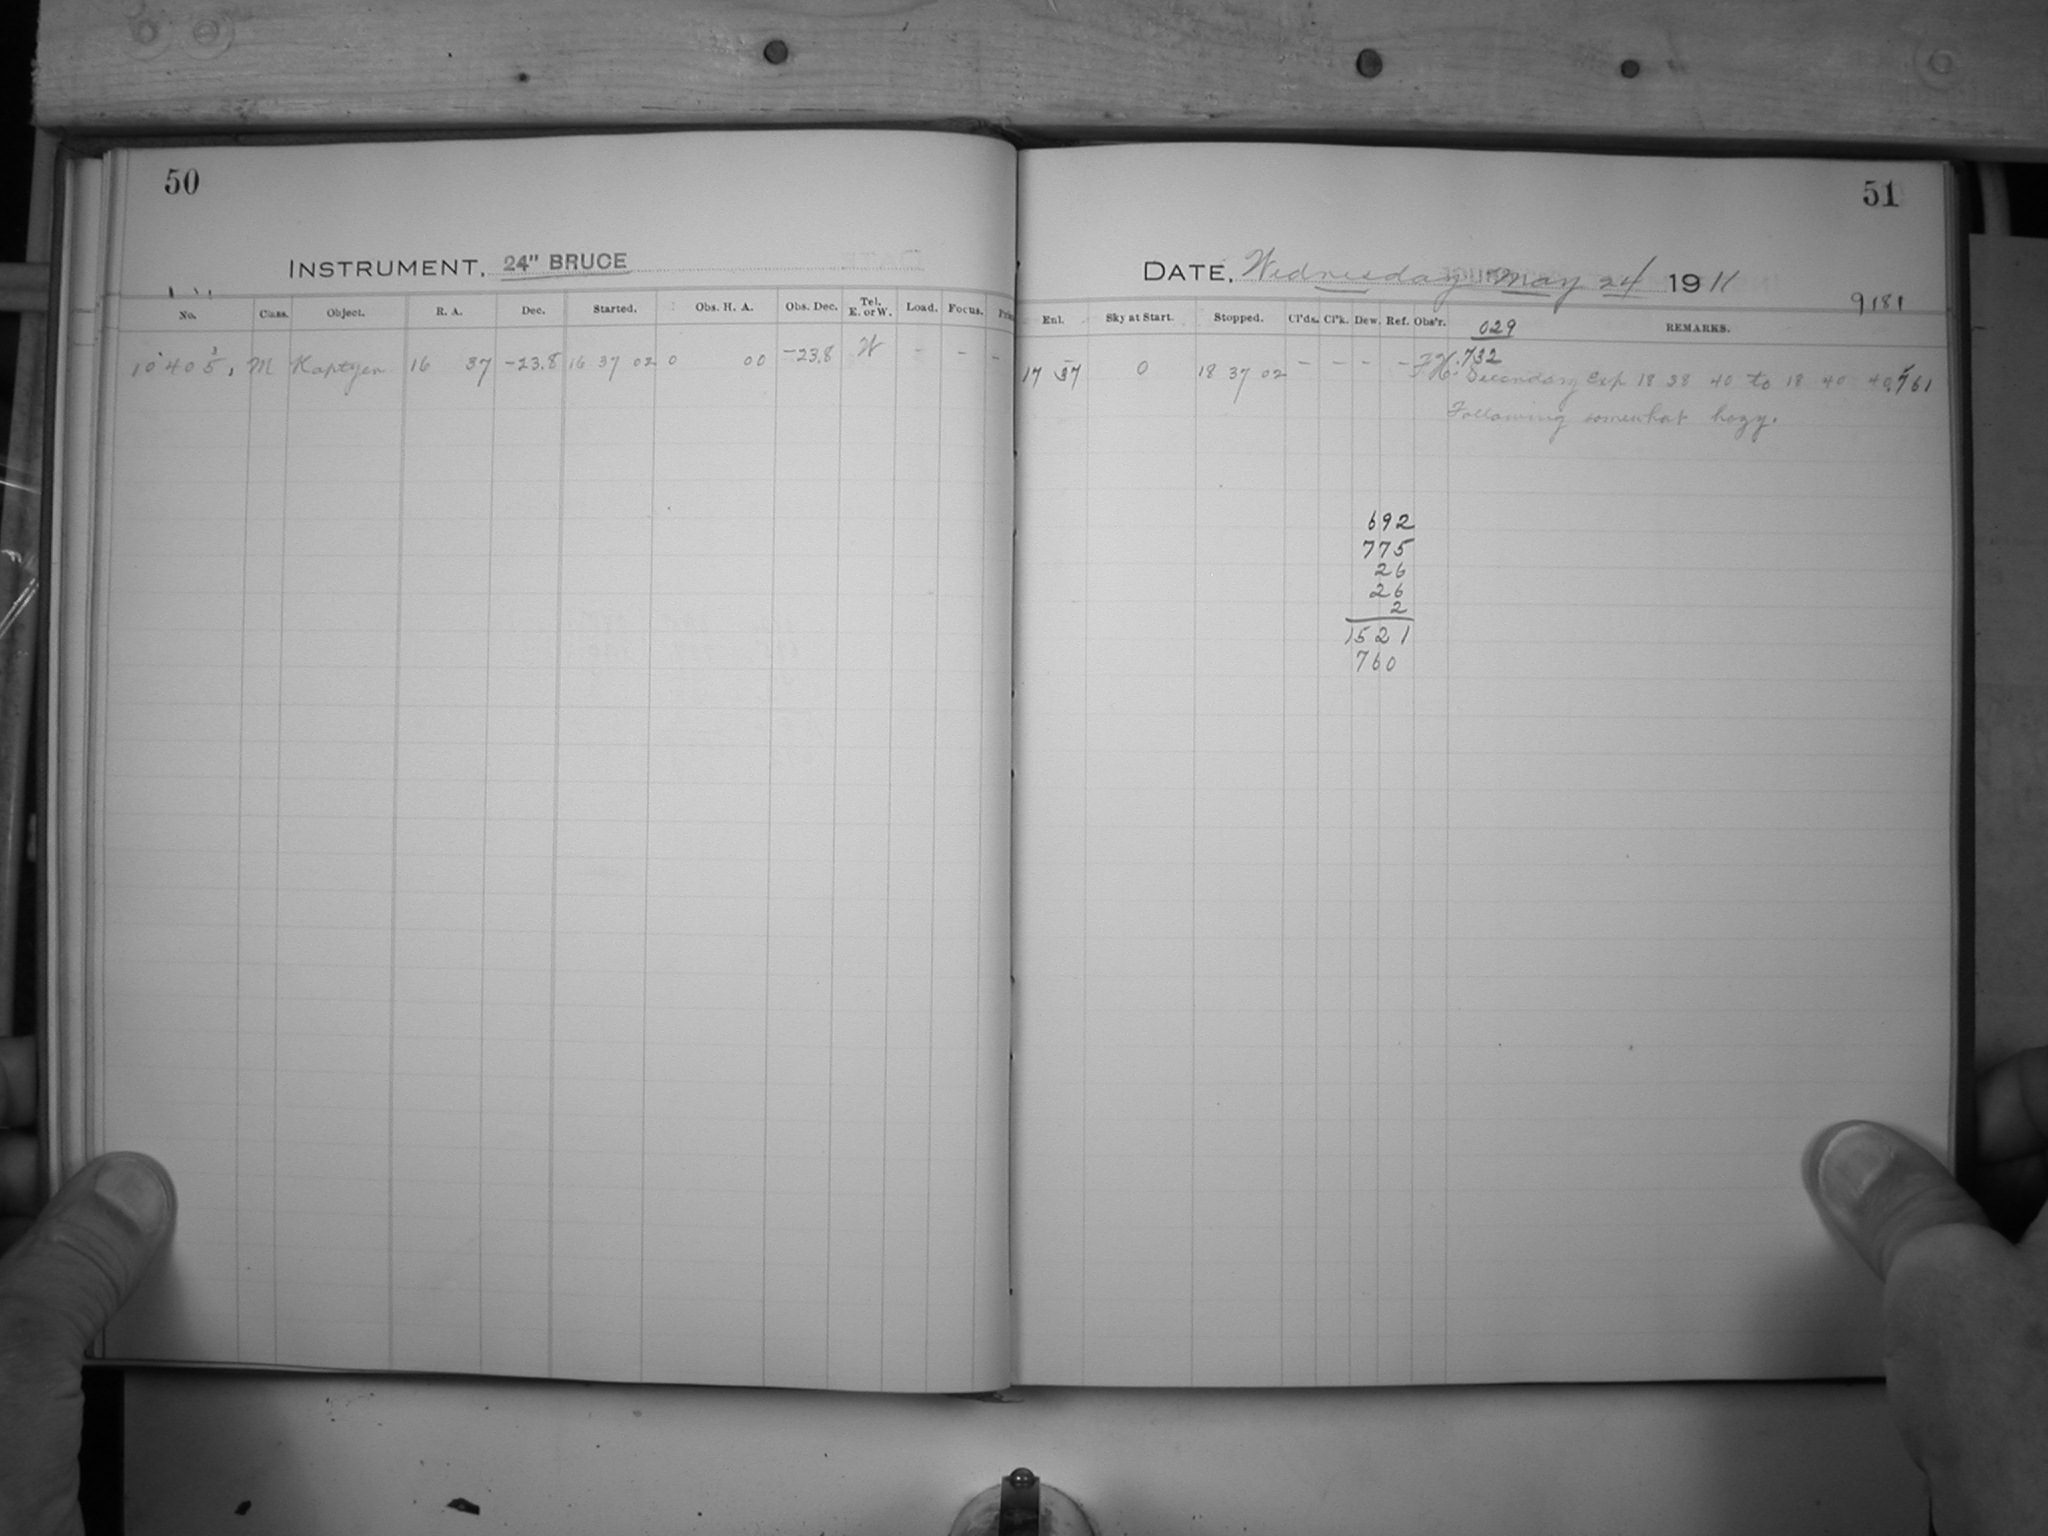 50
INSTRUMENT, 24" BRUCE
No. Class. Object. R. A. Dec. Started. Obs. H. A. Obs. Dec. Tel. E. or W. Load. Focus.
10405, M Kaptyen 16 37 -23.8 16 37 02 0 00 -23.8 W - - -
51
DATE, Wednesday May 24 1911
9181
Enl. Sky at Start. Stopped. Cl'ds. Cl'k. Dew. Ref. Obs'r. 029 REMARKS.
.732
17 37 0 18 37 02 - - - - F.H. Secondary Exp 18 38 40 to 18 40 40 .761
Following somewhat hazy.
692
775
26
26
2
1521
760